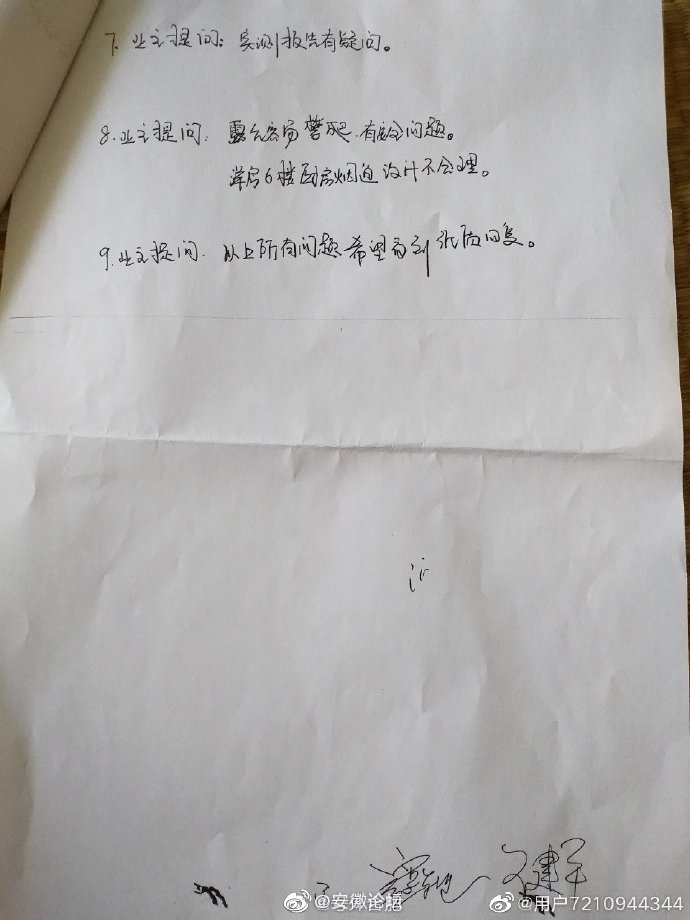 7. 业主提问：实测报告有疑问。
8. 业主提问：露台容易攀爬.有安全问题。
洋房6楼厨房烟道设计不合理。
9. 业主提问. 以上所有问题希望看到纸质回复。
@安徽论脑
@用户7210944344